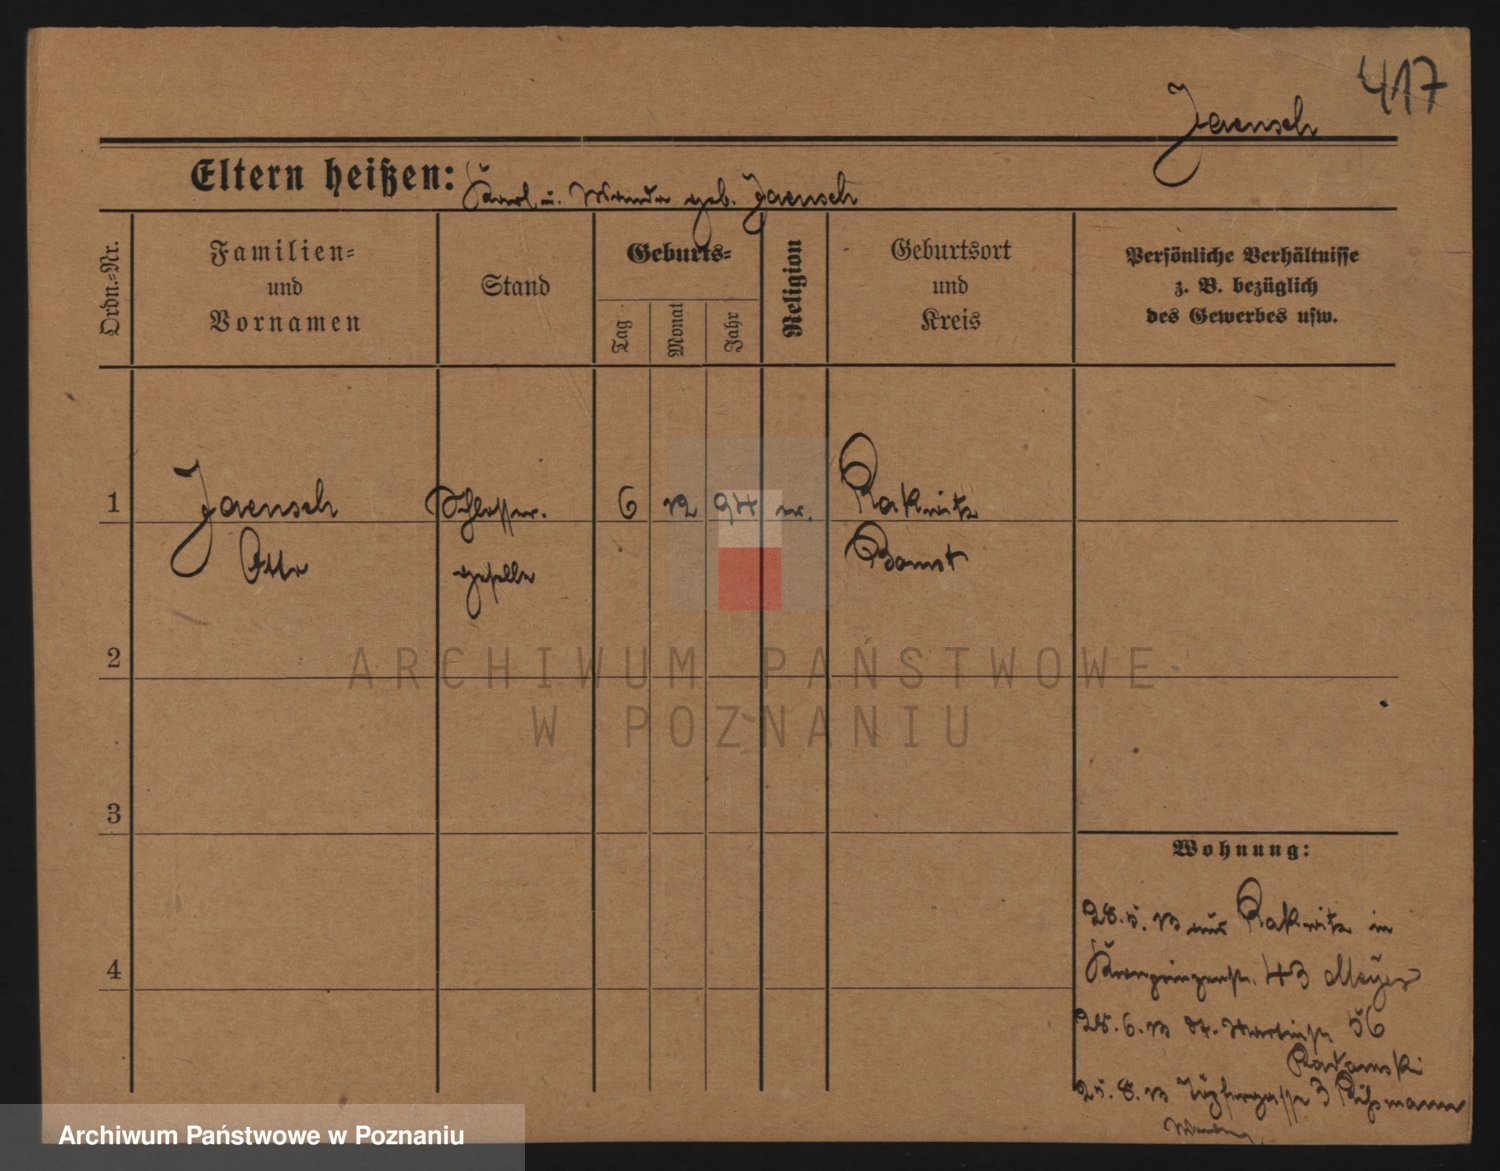 417
Jaensch
Eltern heißen: Karl u. Wanda geb. Jaensch
Ordn.-Nr.
Familien-
und
Vornamen
Stand
Geburts-
Tag
Monat
Jahr
Religion
Geburtsort
und
Kreis
Persönliche Verhältnisse
z. B. bezüglich
des Gewerbes usw.
1
Jaensch
Otto
Schlosser-
geselle
6
12
94
ev.
Rakwitz
Bomst
2
3
4
Wohnung:
28.5.13 aus Rakwitz in
Kronprinzenstr. 43 Meyer
28.6.13 St. Martinstr. 56
Ratamski
25.8.13 Töpfergasse 3 Rißmann
ARCHIWUM PAŃSTWOWE
W POZNANIU
Archiwum Państwowe w Poznaniu